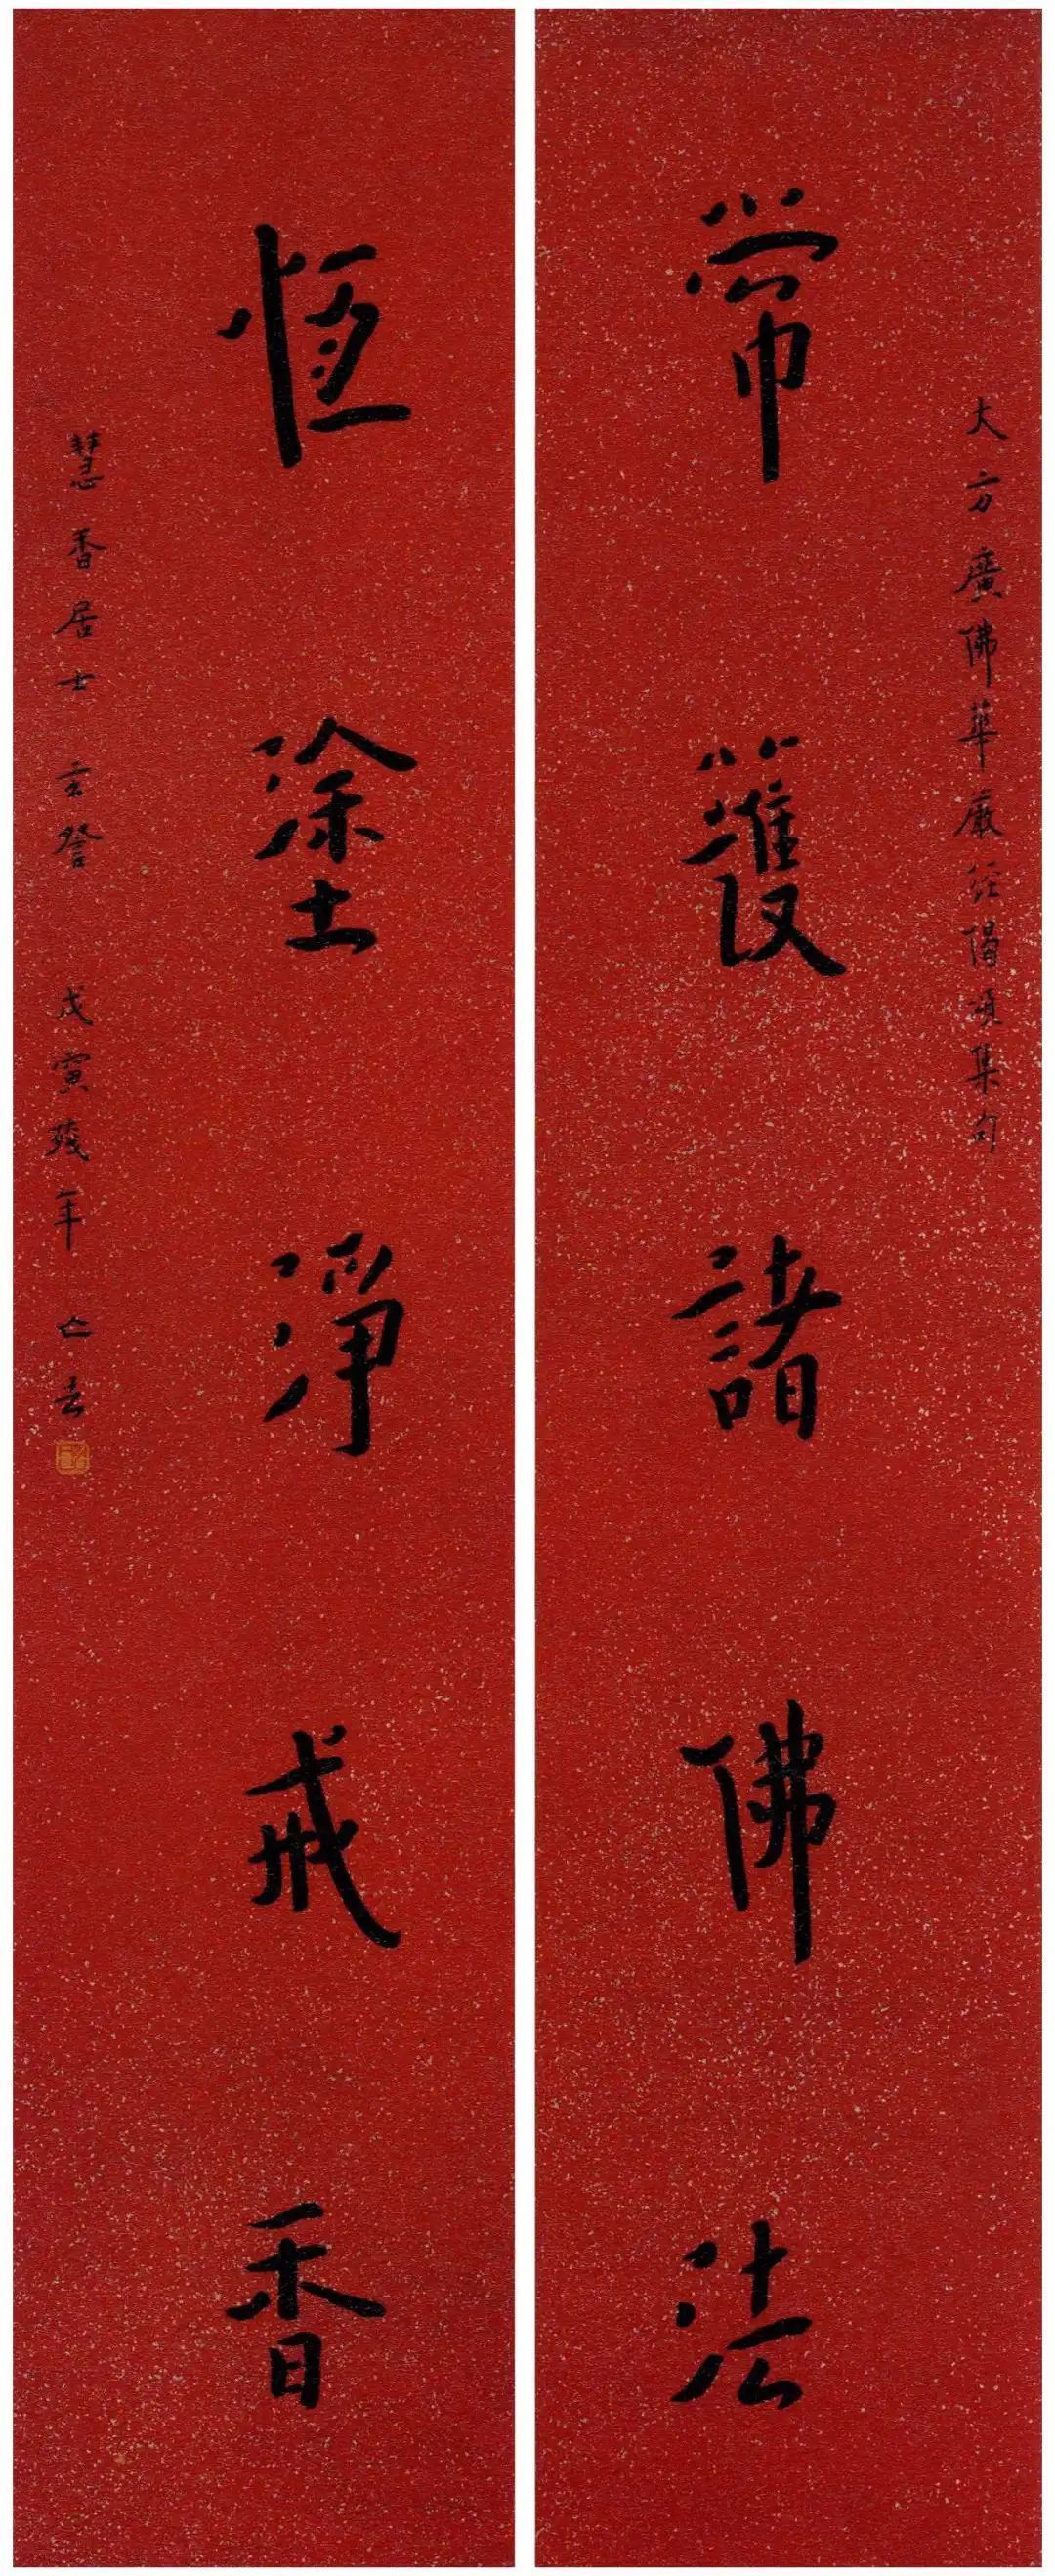 大方廣佛華嚴經偈頌集句
常護諸佛法
恆塗淨戒香
慧香居士 玄詧 戊寅殘年 亡去